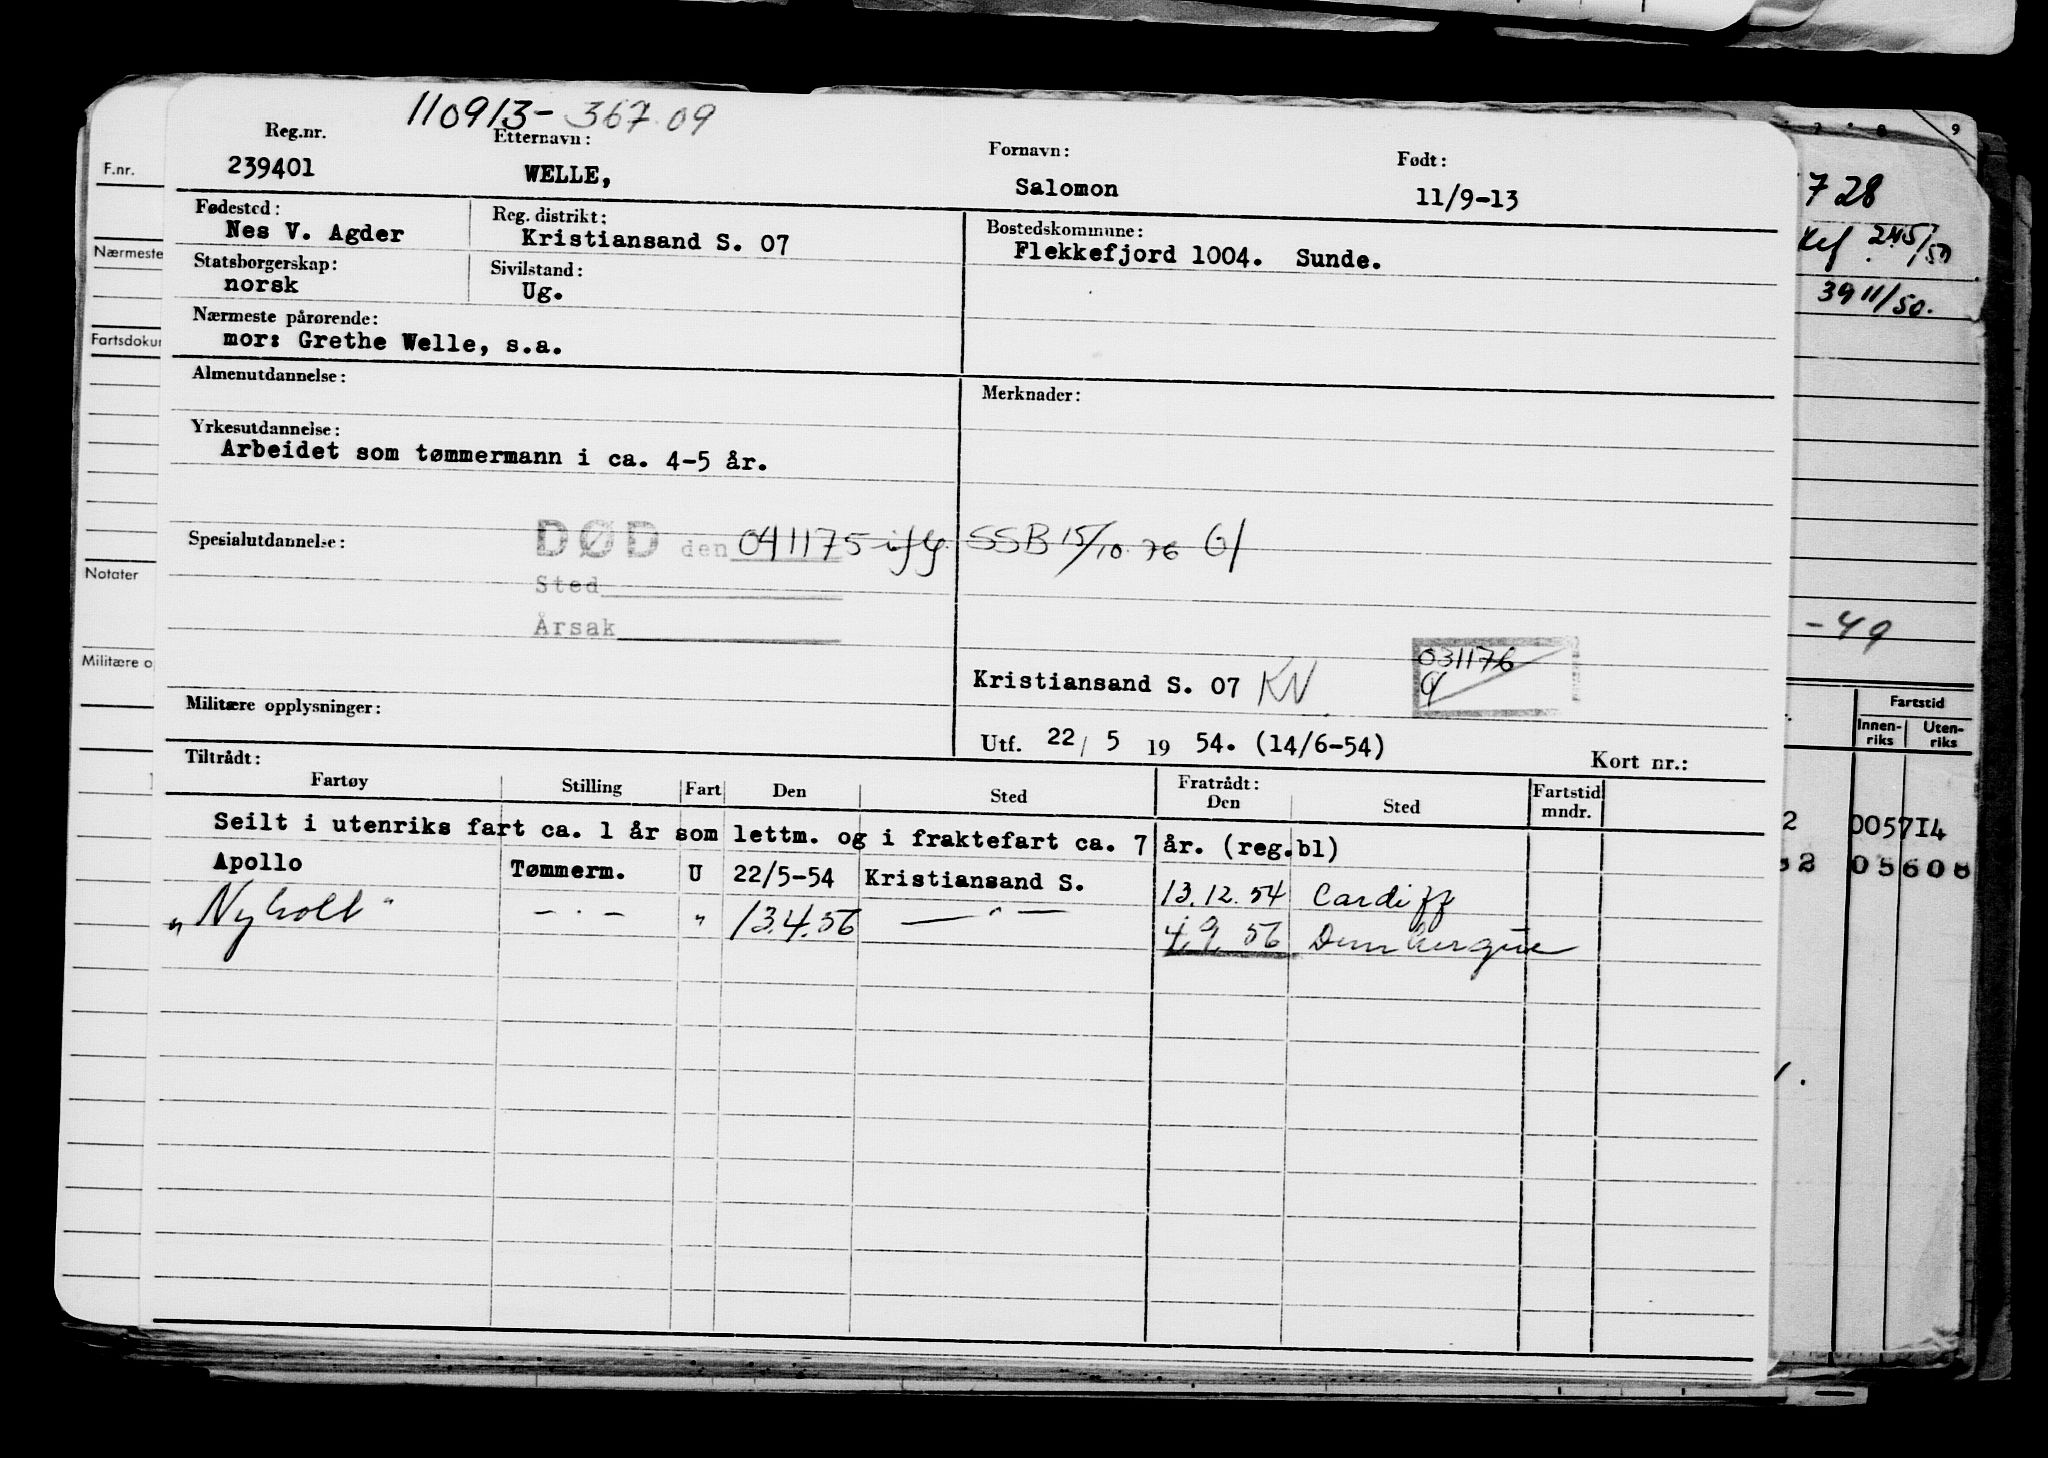 110913-36709
Reg.nr. Etternavn: Fornavn: Født:
239401 WELLE, Salomon 11/9-13
Fødested: Reg. distrikt: Bostedskommune:
Nes V. Agder Kristiansand S. 07 Flekkefjord 1004. Sunde.
Statsborgerskap: Sivilstand:
norsk Ug.
Nærmeste pårørende:
mor: Grethe Welle, s.a.
Almenutdannelse: Merknader:
Yrkesutdannelse:
Arbeidet som tømmermann i ca. 4-5 år.
Spesialutdannelse: DØD den 041175 ifg. SSB 15/10.76
Sted
Årsak
031176
Kristiansand S. 07 KN
Militære opplysninger:
Utf. 22/ 5 19 54. (14/6-54) Kort nr.:
Tiltrådt: Fratrådt:
Fartøy Stilling Fart Den Sted Den Sted Fartstid mndr.
Seilt i utenriks fart ca. 1 år som lettm. og i fraktefart ca. 7 år. (reg.bl)
Apollo Tømmerm. U 22/5-54 Kristiansand S. 13.12.54 Cardiff
"Nyholt" - . - " 13.4.56 — " — 4.9.56 Dunkerque
F.nr.
Nærmeste
Fartsdokum
Notater
Militære o
9
728
245/50
3911/50.
-49
Fartstid
Innen-riks Uten-riks
2 005714
32 05608